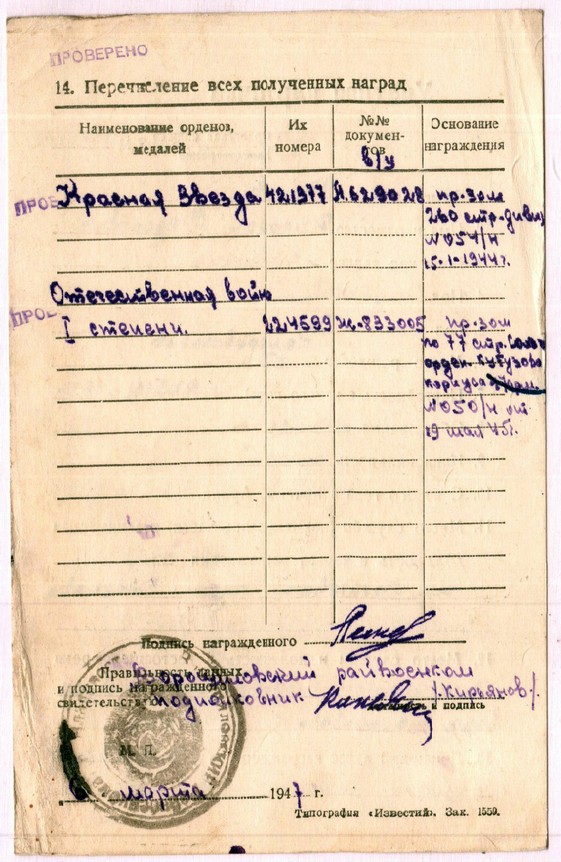 ПРОВЕРЕНО
14. Перечисление всех полученных наград
Наименование орденов, медалей
Их номера
№№ документов
в/у
Основание награждения
ПРОВ
Красная Звезда 421977 А.629028 пр-зом
260 стр-дивиз
№ 054/н
15-1-1944 г.
Отечественная войн
ПРОВ
I степени. 224599 Ж-833005 пр-зом
по 77 стр.
орден. Кутузова
корпуса
№ 050/н от
19 мая 45 г.
Подпись награжденного
Правильность данных
и подпись награжденного
свидетельств
Ворошиловский райвоенком
подполковник /Кирьянов/
должность и подпись
М. П.
6 марта 1947 г.
Типография «Известий». Зак. 1559.